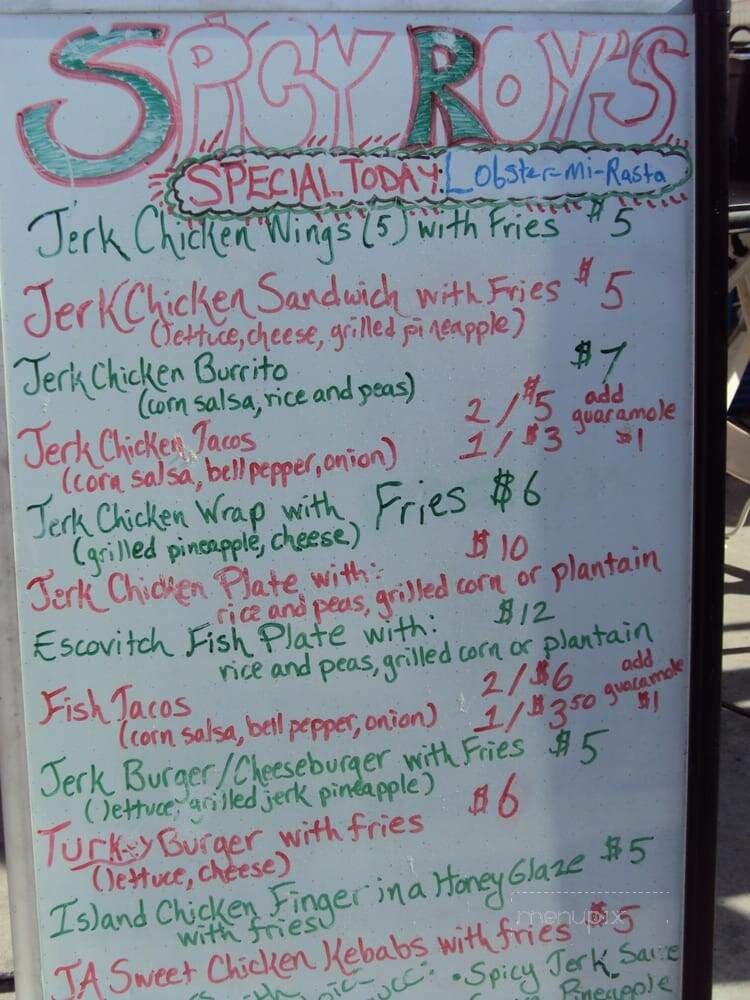 SPICY ROY'S
SPECIAL TODAY: Lobster-Mi-Rasta
Jerk Chicken Wings (5) with Fries $5
Jerk Chicken Sandwich with Fries $5
(lettuce, cheese, grilled pineapple)
Jerk Chicken Burrito $7
(corn salsa, rice and peas)
Jerk Chicken Tacos 2/$5 add guaramole
(corn salsa, bell pepper, onion) 1/$3 $1
Jerk Chicken Wrap with Fries $6
(grilled pineapple, cheese)
Jerk Chicken Plate with: $10
rice and peas, grilled corn or plantain
Escovitch Fish Plate with: $12
rice and peas, grilled corn or plantain
Fish Tacos 2/$6 add guaramole
(corn salsa, bell pepper, onion) 1/$3.50 $1
Jerk Burger/Cheeseburger with Fries $5
(lettuce, grilled jerk pineapple)
Turkey Burger with fries $6
(lettuce, cheese)
Island Chicken Finger in a Honey Glaze $5
with fries
menupix
JA Sweet Chicken Kebabs with fries $5
• Spicy Jerk Sauce
Pineapple